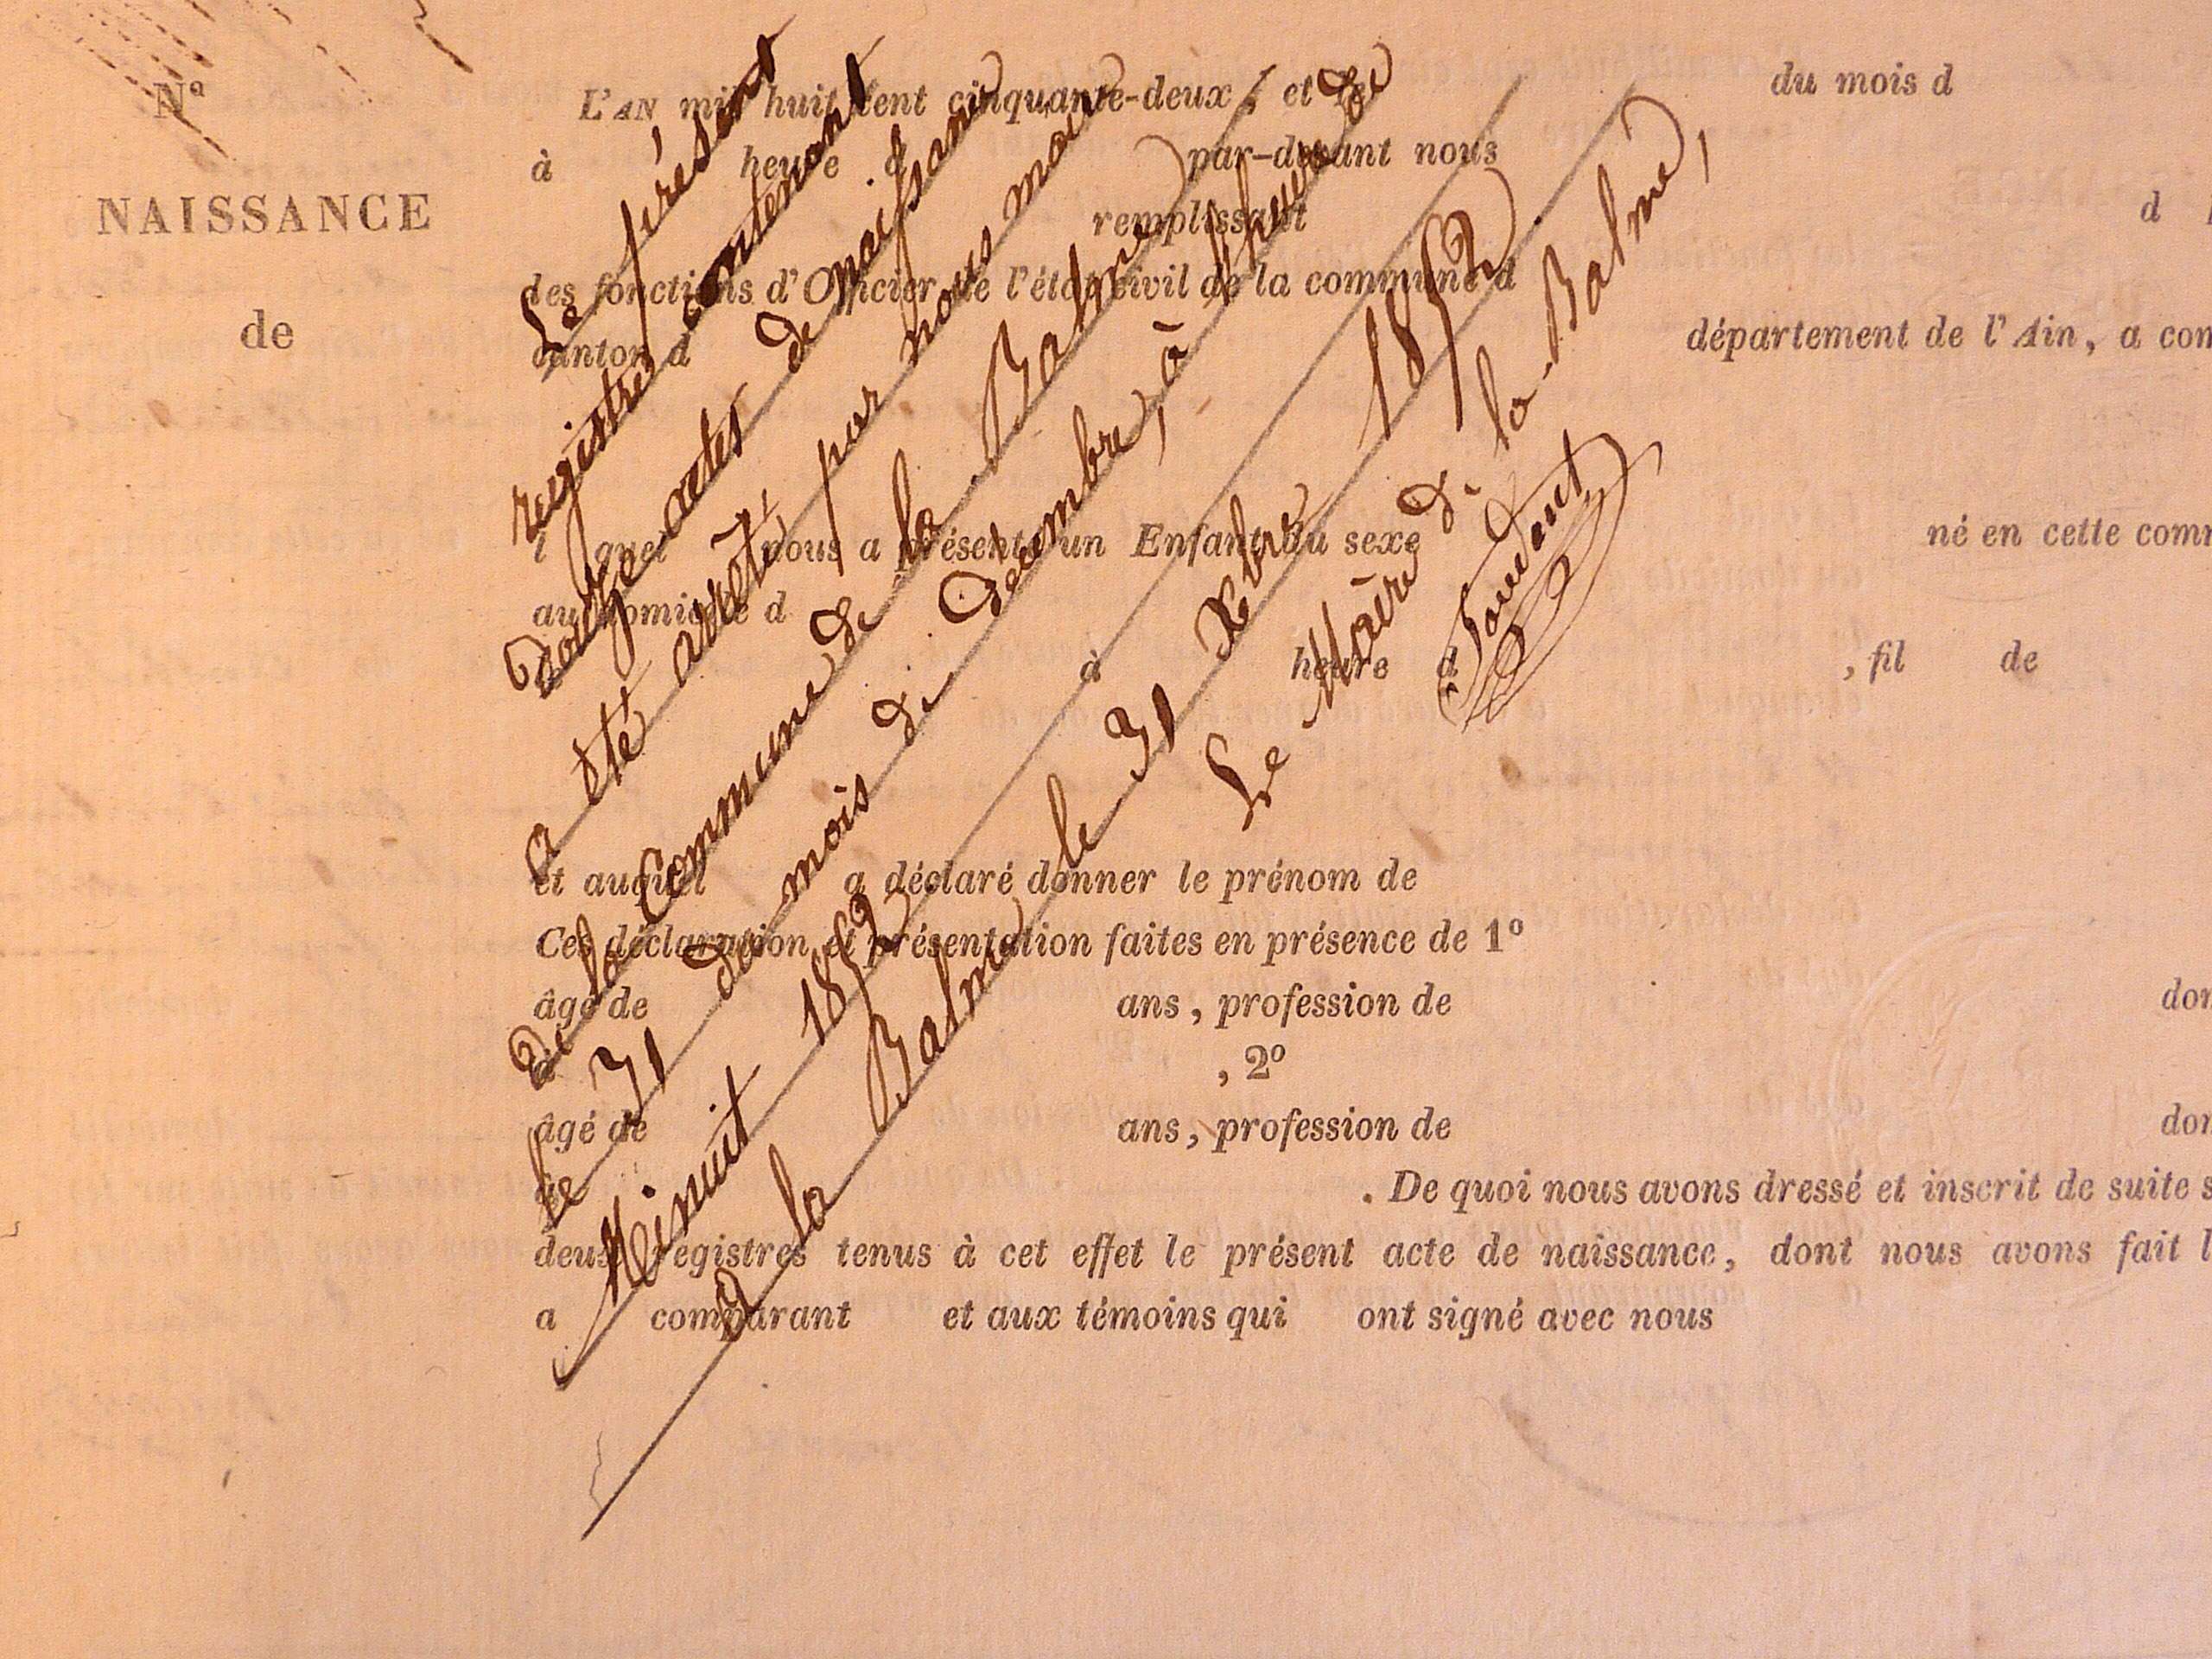 No
NAISSANCE
de
L'AN mil huit cent cinquante-deux, et le du mois d
à heure d par-devant nous
remplissant d
des fonctions d'Officier de l'état civil de la commune d
canton d département de l'Ain, a com
l quel nous a présenté un Enfant du sexe né en cette comm
au domicile d
à heure d , fil de
et auquel a déclaré donner le prénom de
Ces déclaration et présentation faites en présence de 1o
âgé de ans, profession de don
, 2o
âgé de ans, profession de don
. De quoi nous avons dressé et inscrit de suite s
deux registres tenus à cet effet le présent acte de naissance, dont nous avons fait l
a comparant et aux témoins qui ont signé avec nous
Le présent
registre contenant
douze actes de naissance
a été arrêté par nous maire
de la Commune de la Balme
le 31 du mois de Decembre, à l'heure de
Minuit 1852
a la Balme le 31 Xbre 1852
Le Maire de la Balme,